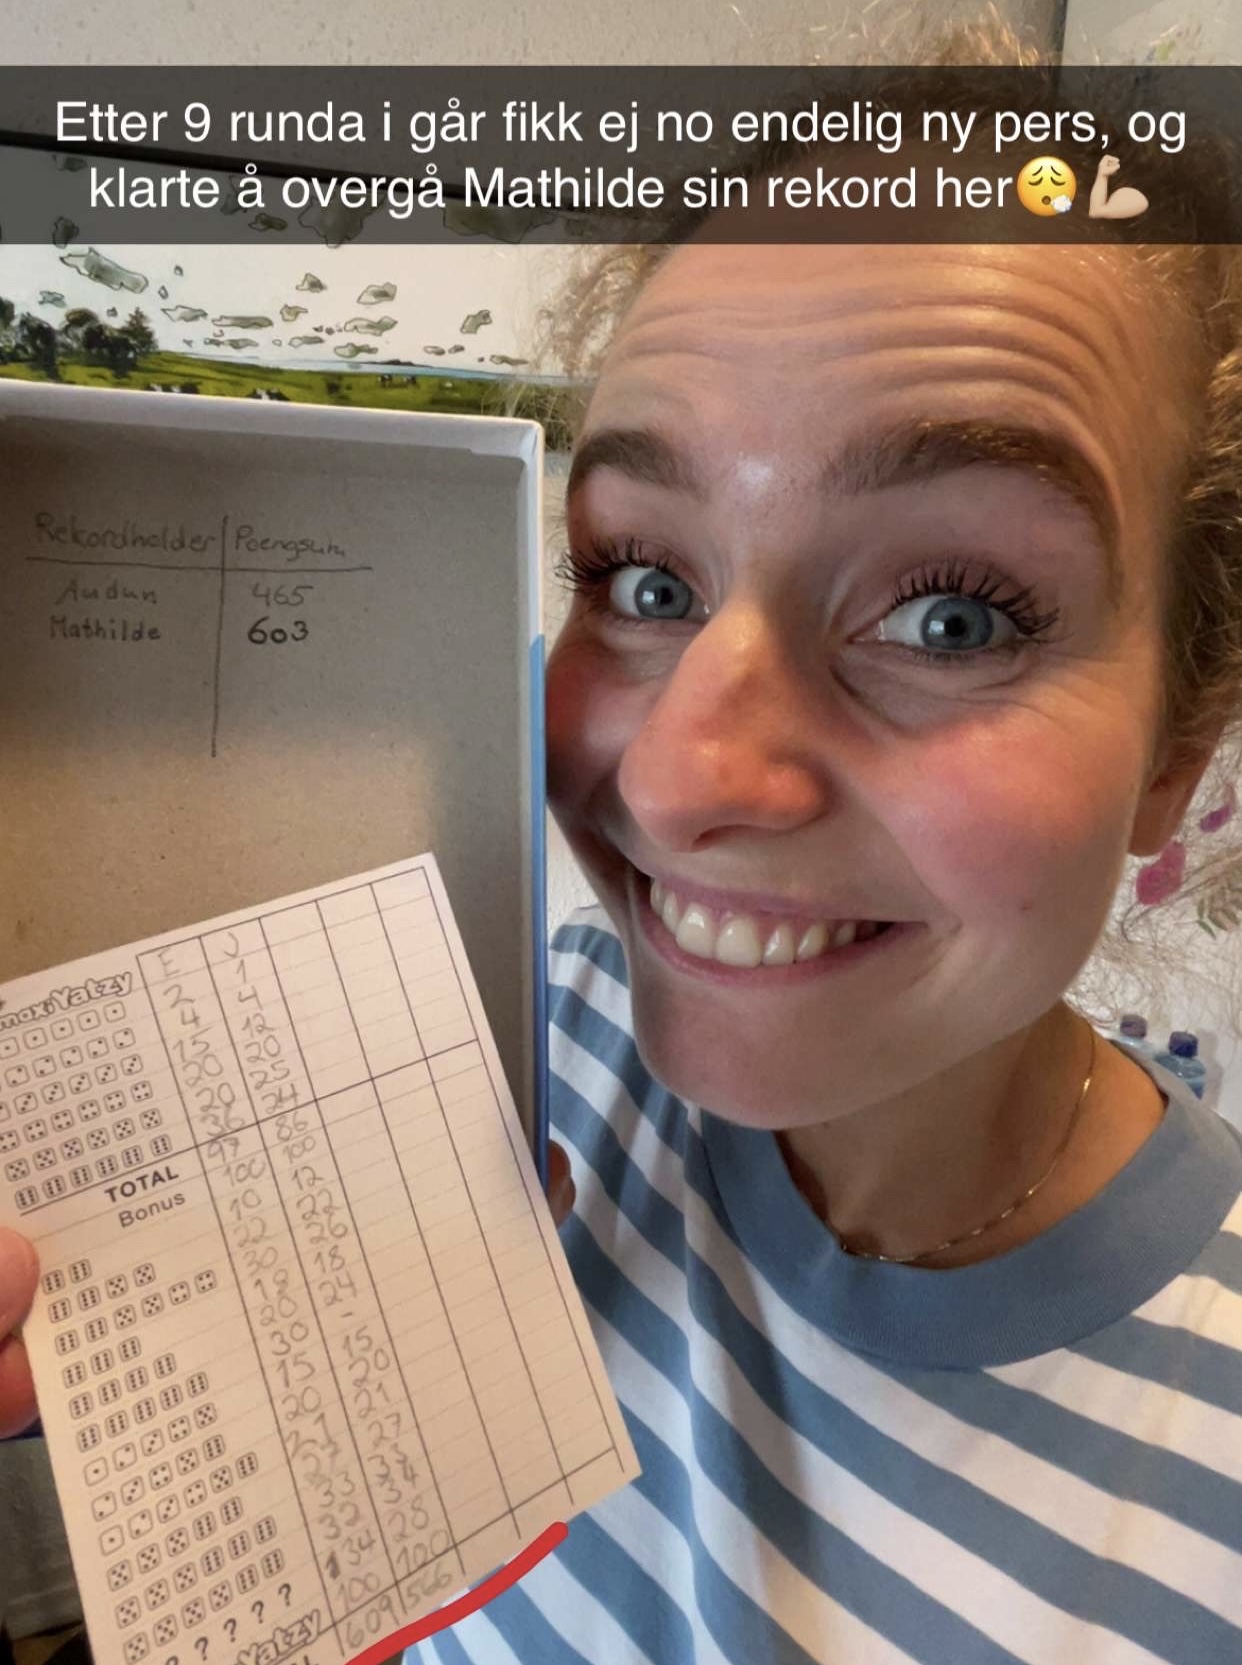 Etter 9 runda i går fikk ej no endelig ny pers, og
klarte å overgå Mathilde sin rekord her😮‍💨💪🏻
Rekordholder Poengsum
Audun 465
Mathilde 603
maxi Yatzy E J
2 1
4 4
15 12
20 20
20 25
36 24
TOTAL 97 86
Bonus 100 100
10 12
22 22
30 26
18 18
20 24
30 -
15 15
20 20
21 21
27 27
33
28
34
100 100
? ? ? ?
Yatzy
609 566